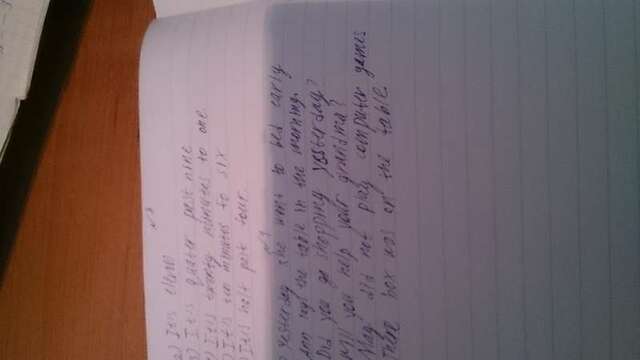 2) It's eleven
It is quater past nine
It is twenty minutes to one.
It is ten minutes to six
It is half past four.
yesterday she went to bed early
the table in the morning.
Did you go shopping yesterday?
Will you help your grandma?
May did not play computer games
box was on the table.